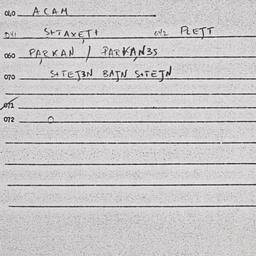 040 ACAM
041 S+TAXET+ 042 PLETT
060 PARKAN / PARKAN3S
070 S+TET3N BATN S+TETN
071
072 0